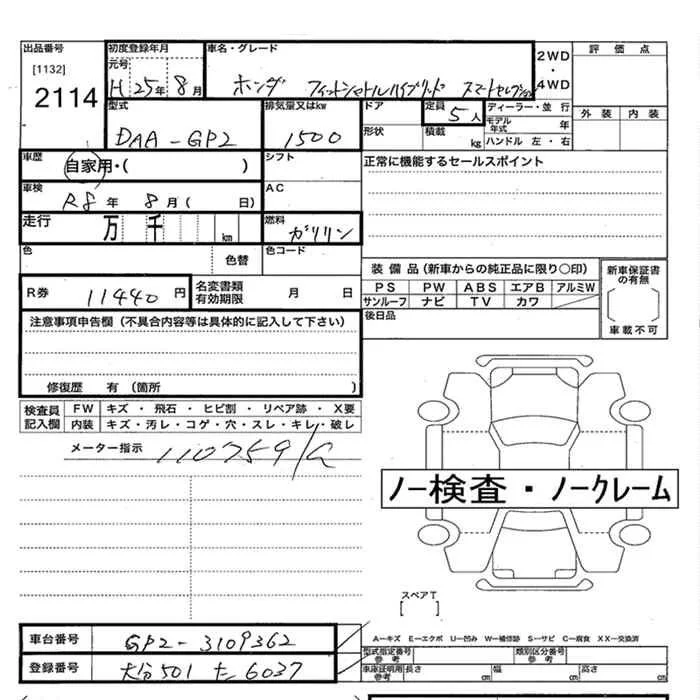 出品番号 初度登録年月 車名・グレード 2WD 評価点
[1132] 元号
2114 H 25年 8月 ホンダ フィットシャトルハイブリッド スマートセレクション ・ 4WD
型式 排気量又はkw ドア 定員 5人 ディーラー・並行 外装 内装
DAA-GP2 1500 形状 積載 kg モデル年式 年
ハンドル 左・右
車歴 自家用・( ) シフト 正常に機能するセールスポイント
車検 R8年 8月( 日) AC
走行 万 千 km 燃料 ガソリン
色 色替 色コード
装備品(新車からの純正品に限り○印) 新車保証書の有無
R券 11440円 名変書類有効期限 月 日 PS PW ABS エアB アルミW
サンルーフ ナビ TV カワ
注意事項申告欄(不具合内容等は具体的に記入して下さい) 後日品 車載不可
修復歴 有(箇所 )
検査員記入欄 FW キズ・飛石・ヒビ割・リペア跡・X要
内装 キズ・汚レ・コゲ・穴・スレ・キレ・破レ
メーター指示 110759
ノー検査・ノークレーム
スペアT
[ ]
車台番号 GP2-3109362 A-キズ E-エクボ U-凹み W-補修跡 S-サビ C-腐食 XX-交換済
型式指定番号参考 類別区分番号参考
登録番号 大分501 た 6037 車庫証明用参考 長さ cm 幅 cm 高さ cm